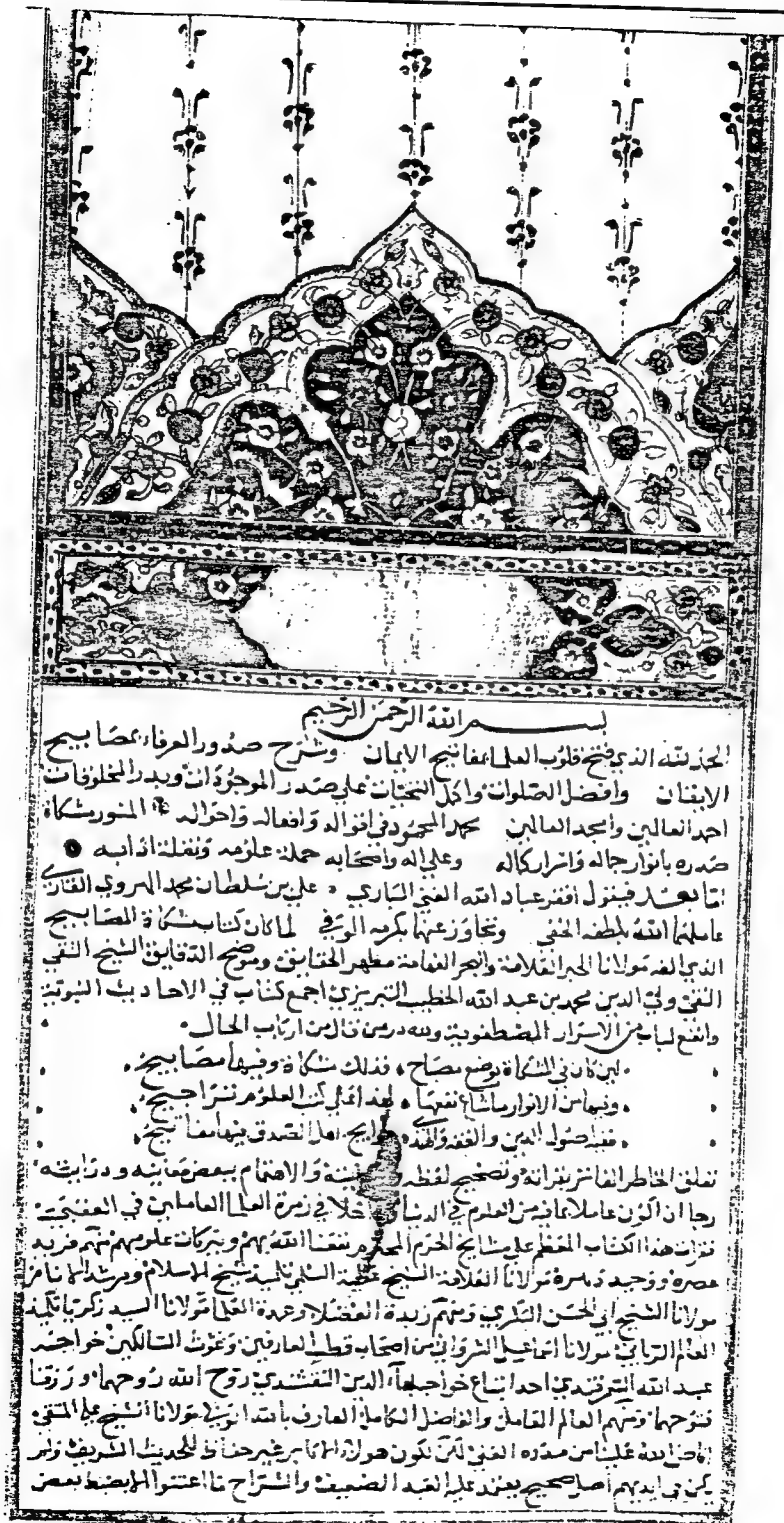 بسم الله الرحمن الرحيم
الحمد لله الذي فتح قلوب العلماء بمفاتيح الايمان وشرح صدور العرفاء بمصابيح
الايقان وافضل الصلوات واكمل التحيات على صدر الموجودات وبدر المخلوقات
احمد العالمين وامجد العالمين محمد المحمود في اقواله وافعاله واحواله المنور مشكاة
صدره بانوار جماله واسرار كماله وعلى اله واصحابه حملة علومه ونقلة ادابه
اما بعد فيقول افقر عباد الله الغني الباري علي بن سلطان محمد الهروي القاري
عاملهما الله بلطفه الخفي وتجاوز عنهما بكرمه الوفي لما كان كتاب مشكاة المصابيح
الذي الفه مولانا الحبر العلامة والبحر الفهامة مظهر الحقايق وموضح الدقايق الشيخ التقي
النقي ولي الدين محمد بن عبد الله الخطيب التبريزي اجمع كتاب في الاحاديث النبوية
وانفع لباب من الاسرار المصطفوية ولله در من قال من ارباب الحال
لين كان في المشكاة يوضع مصباح فذلك مشكاة وفيها مصابيح
وفيها من الانوار ما شاع نفعها لهذا على كتب العلوم تراجيح
ففيه اصول الدين والفقه والهدى حوايج اهل الصدق منها مفاتيح
تعلق الخاطر الفاتر بقراته وتصحيح لفظه والاهتمام ببعض معانيه ودرايته
رجا ان اكون عاملا بما فيه من العلوم في الدنيا داخلا في زمرة العلما العاملين في العقبى
فقرات هذا الكتاب المعظم على مشايخ الحرم المحترم نفعنا الله بهم وببركات علومهم منهم فريد
عصره ووحيد دهره مولانا العلامة الشيخ عطية السلمي تلميذ شيخ الاسلام ومرشد الانام
مولانا الشيخ ابي الحسن البكري ومنهم زبدة الفضلا وعمدة العلما مولانا السيد زكريا تلميذ
العالم الرباني مولانا اسماعيل الشرواني من اصحاب قطب العارفين وغوث السالكين خواجه
عبيد الله السمرقندي احد اتباع خواجه بهاء الدين النقشبندي روح الله روحهما ورزقنا
فتوحهما ومنهم العالم العامل والفاضل الكامل العارف بالله مولانا الشيخ علي المتقي
افاض الله علينا من مدده لكن لكون هولاء الاكابر غير حفاظ للحديث الشريف ولم
يكن في ايديهم اصل صحيح يعتمد عليه العبد الضعيف والشراح ما اعتنوا الا بضبط بعض